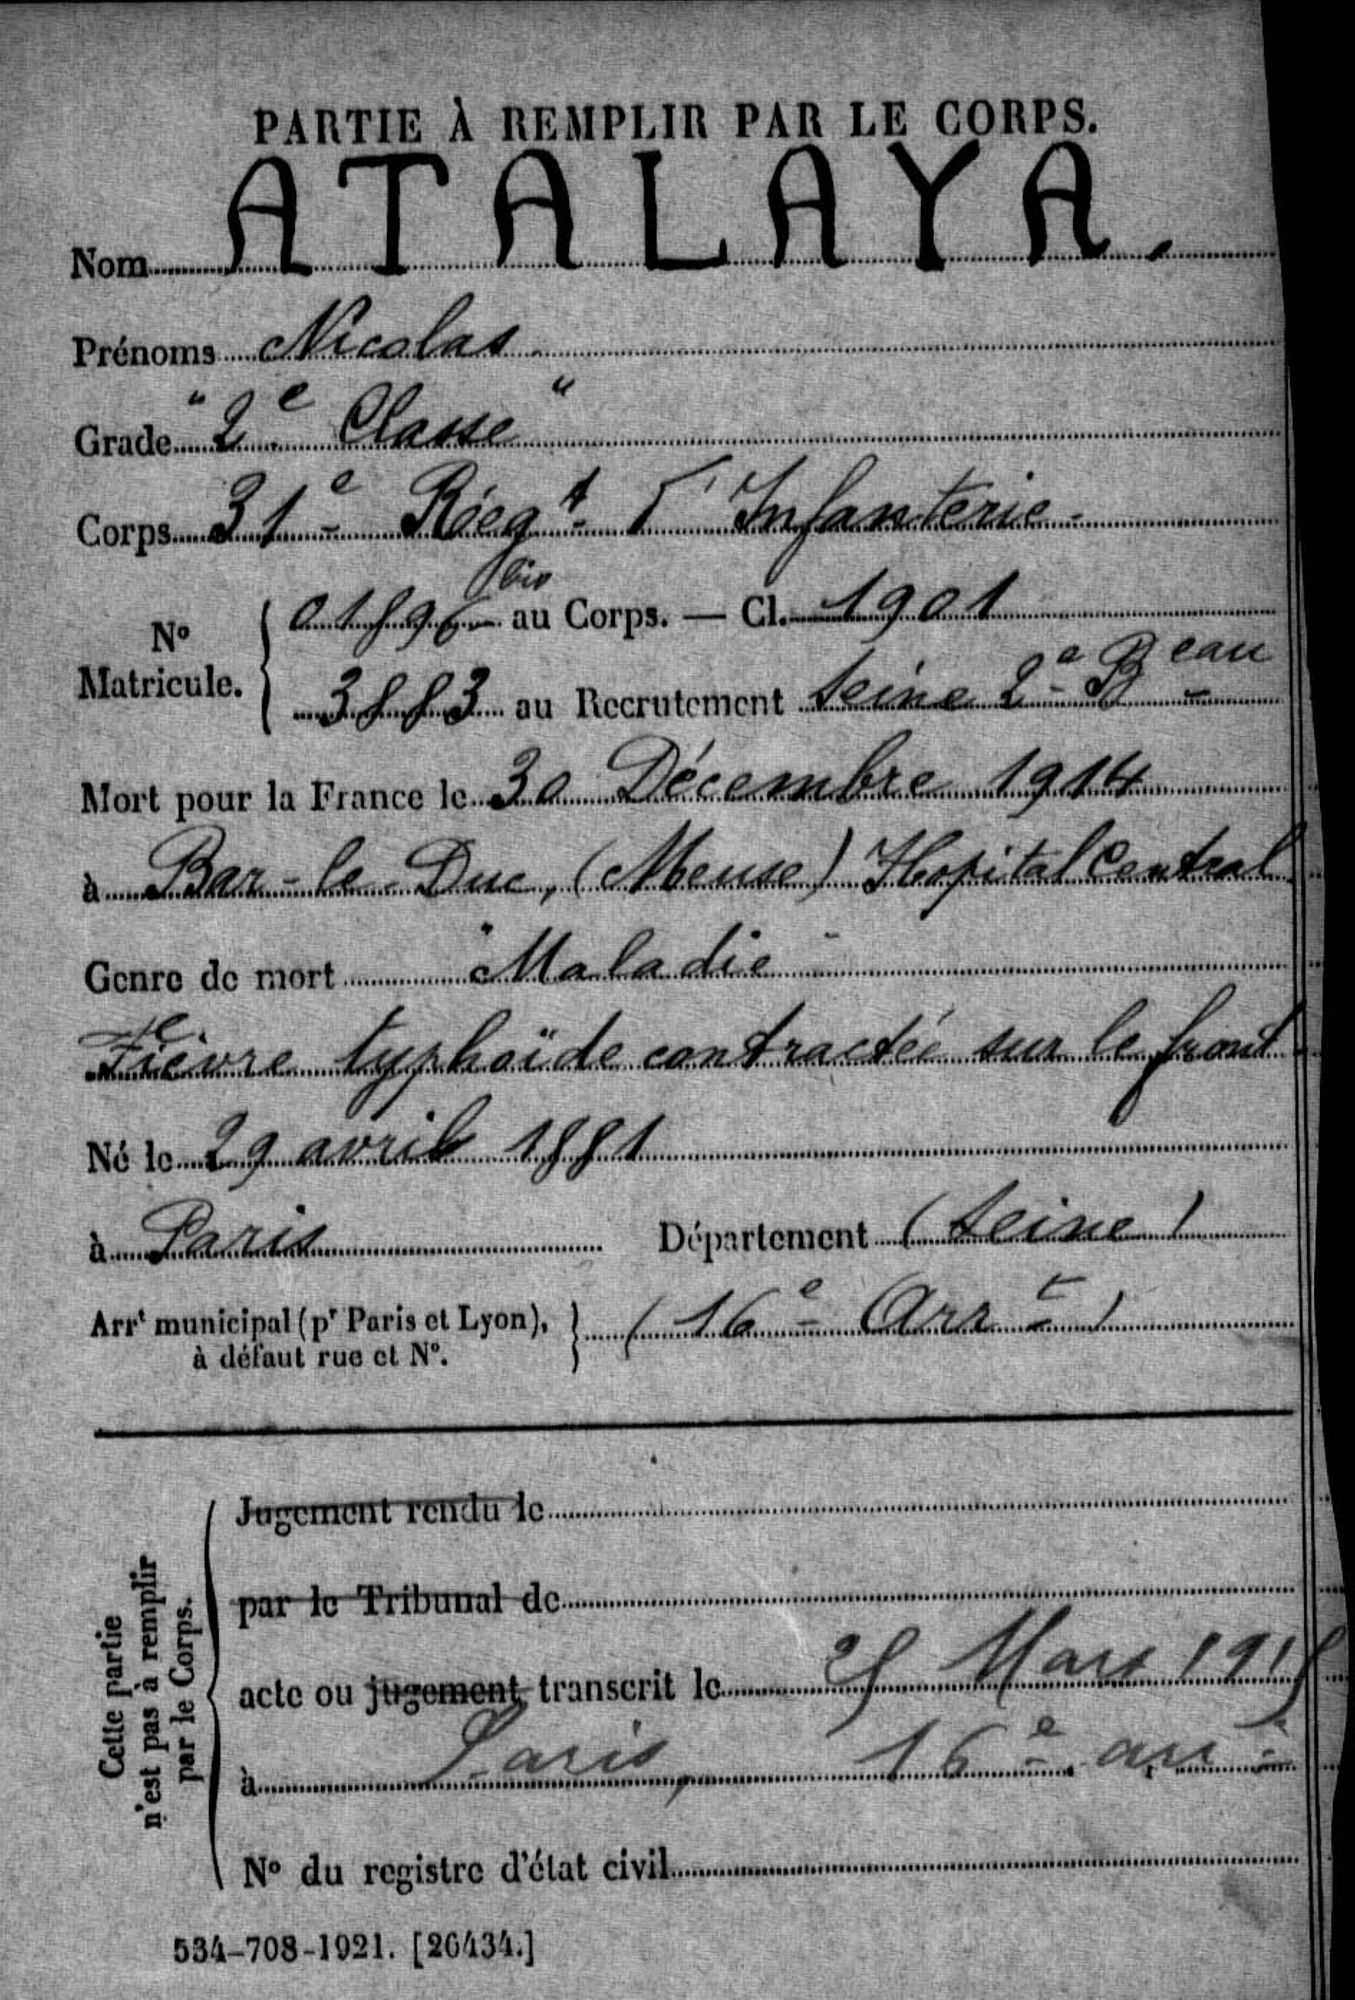 PARTIE À REMPLIR PAR LE CORPS.
Nom ATALAYA.
Prénoms Nicolas
Grade "2e Classe"
Corps 31e Régt d'Infanterie
No Matricule. { 01896 bis au Corps. — Cl. 1901
3883 au Recrutement Seine 2e Beau
Mort pour la France le 30 Décembre 1914
à Bar-le-Duc, (Meuse) Hopital Central
Genre de mort "Maladie"
Fièvre typhoïde contractée sur le front
Né le 29 avril 1881
à Paris Département (Seine)
Arrt municipal (pr Paris et Lyon), à défaut rue et No. } (16e Arrt)
Cette partie n'est pas à remplir par le Corps.
Jugement rendu le
par le Tribunal de
acte ou jugement transcrit le 25 Mars 1915
à Paris, 16e arrt
No du registre d'état civil
534-708-1921. [26434.]